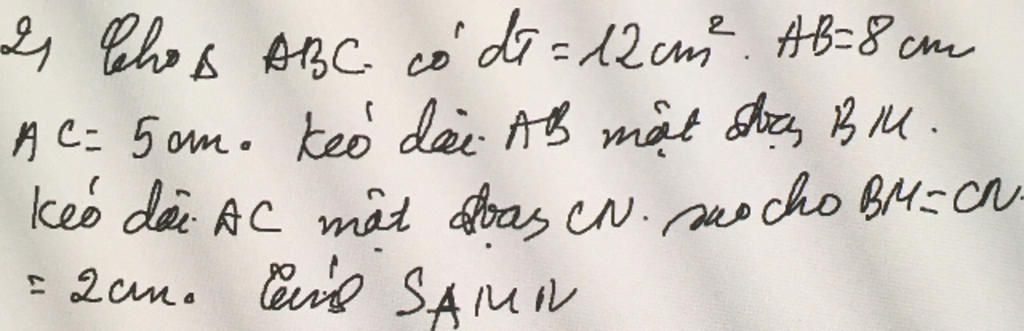 2, Cho Δ ABC. có dt = 12 cm². AB=8 cm
AC= 5 cm. kéo dài AB một đoạn BM.
kéo dài AC một đoạn CN. sao cho BM=CN
= 2cm. Tính SAMN